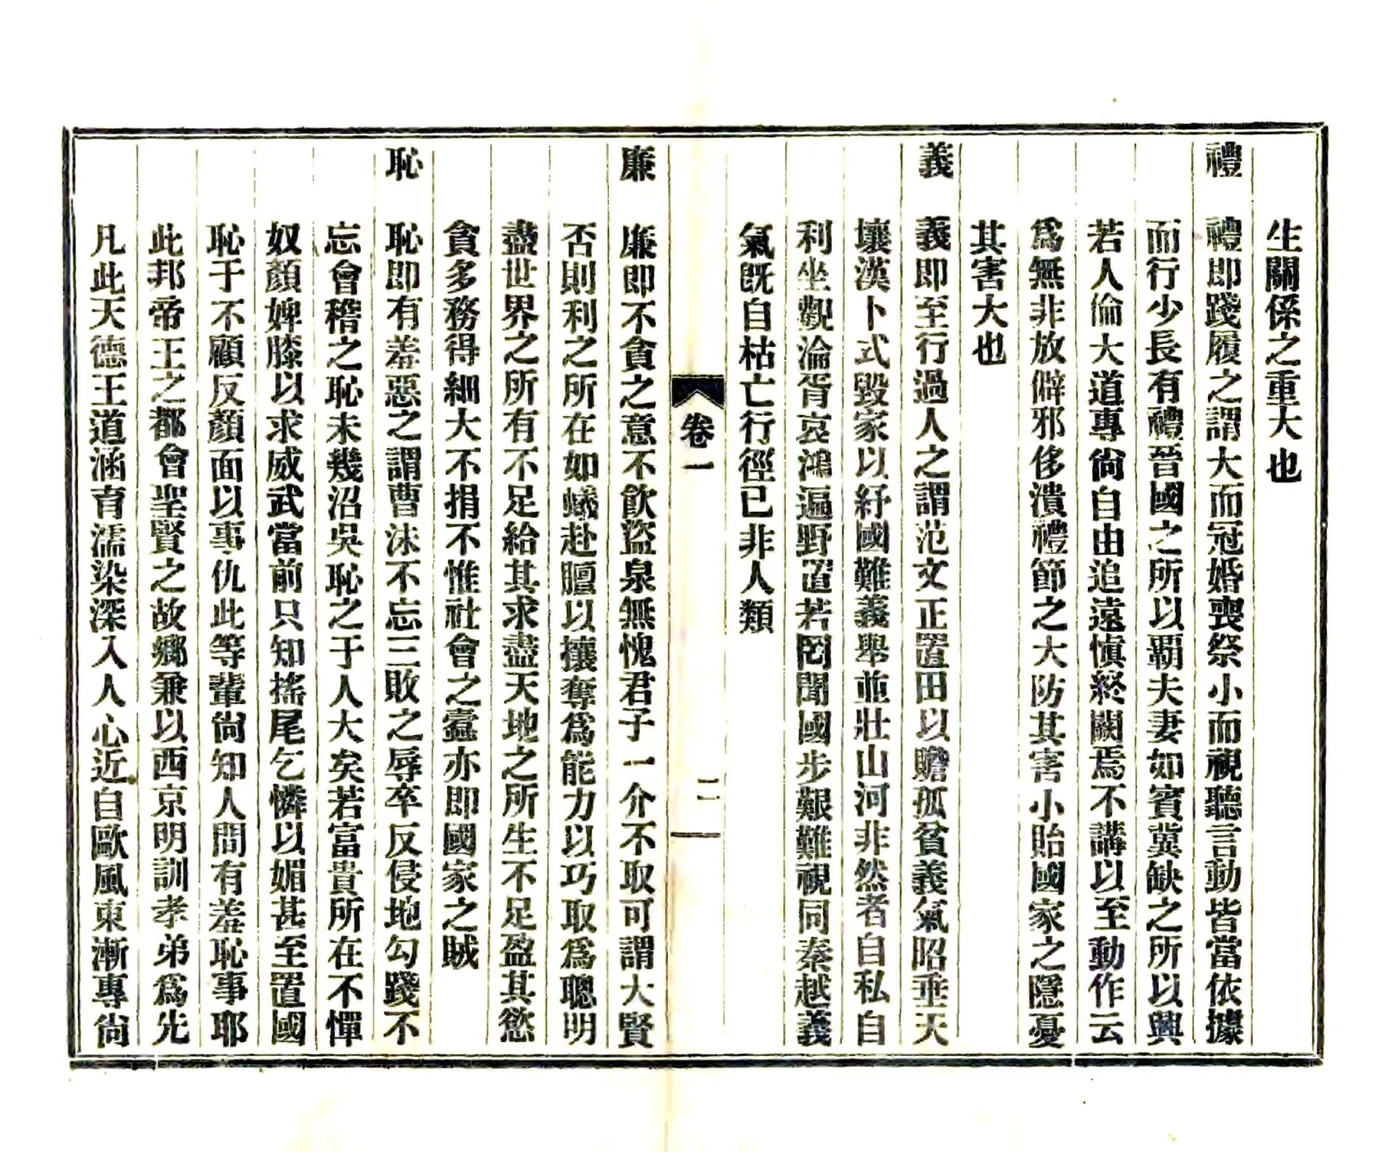 生關係之重大也
禮　禮即踐履之謂大而冠婚喪祭小而視聽言動皆當依據
而行少長有禮晉國之所以霸夫妻如賓冀缺之所以興
若人倫大道專尙自由追遠愼終闕焉不講以至動作云
爲無非放僻邪侈潰禮節之大防其害小貽國家之隱憂
其害大也
義　義即至行過人之謂范文正置田以贍孤貧義氣昭垂天
壤漢卜式毀家以紓國難義舉並壯山河非然者自私自
利坐觀淪胥哀鴻遍野置若罔聞國步艱難視同秦越義
氣旣自枯亡行徑已非人類
卷一
二
廉　廉即不貪之意不飲盜泉無愧君子一介不取可謂大賢
否則利之所在如蟻赴膻以攘奪爲能力以巧取爲聰明
盡世界之所有不足給其求盡天地之所生不足盈其慾
貪多務得細大不捐不惟社會之蠹亦即國家之賊
恥　恥即有羞惡之謂曹沫不忘三敗之辱卒反侵地勾踐不
忘會稽之恥未幾沼吳恥之于人大矣若富貴所在不憚
奴顏婢膝以求威武當前只知搖尾乞憐以媚甚至置國
恥于不顧反顏面以事仇此等輩尙知人間有羞恥事耶
此邦帝王之都會聖賢之故鄉兼以西京明訓孝弟爲先
凡此天德王道涵育濡染深入人心近自歐風東漸專尙